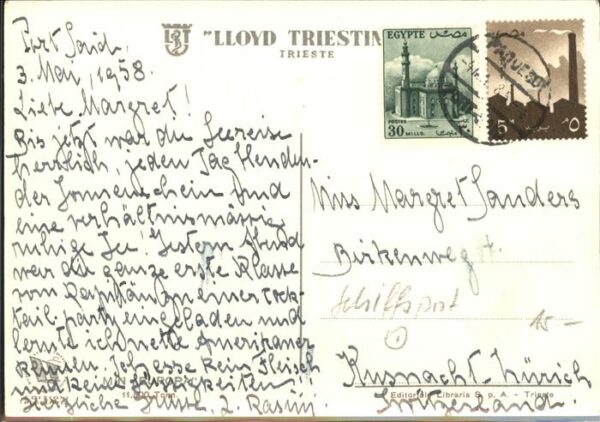 "LLOYD TRIESTIN
TRIESTE
Port Said,
3. Mai, 1958.
Liebe Margret!
Bis jetzt war die Seereise
herrlich, jeden Tag blenden-
der Sonnenschein und
eine verhältnismässig
ruhige See. Gestern Abend
war die ganze erste Klasse
vom Kapitän zu einer Cock-
tail-party eingeladen und
lernte ich nette Amerikaner
kennen. Ich esse kein Fleisch
und keine
Herzliche Grüsse,
11,000 Tonn.
EGYPTE
مصر
POSTES
30
MILLS.
مصر
5
٥
PAQUEBOT
Miss Margret Sanders
Birkenweg
Schiffspost
15-
Kusnacht-Zürich
Editoriale Libraria S. p. A. - Trieste
Switzerland.